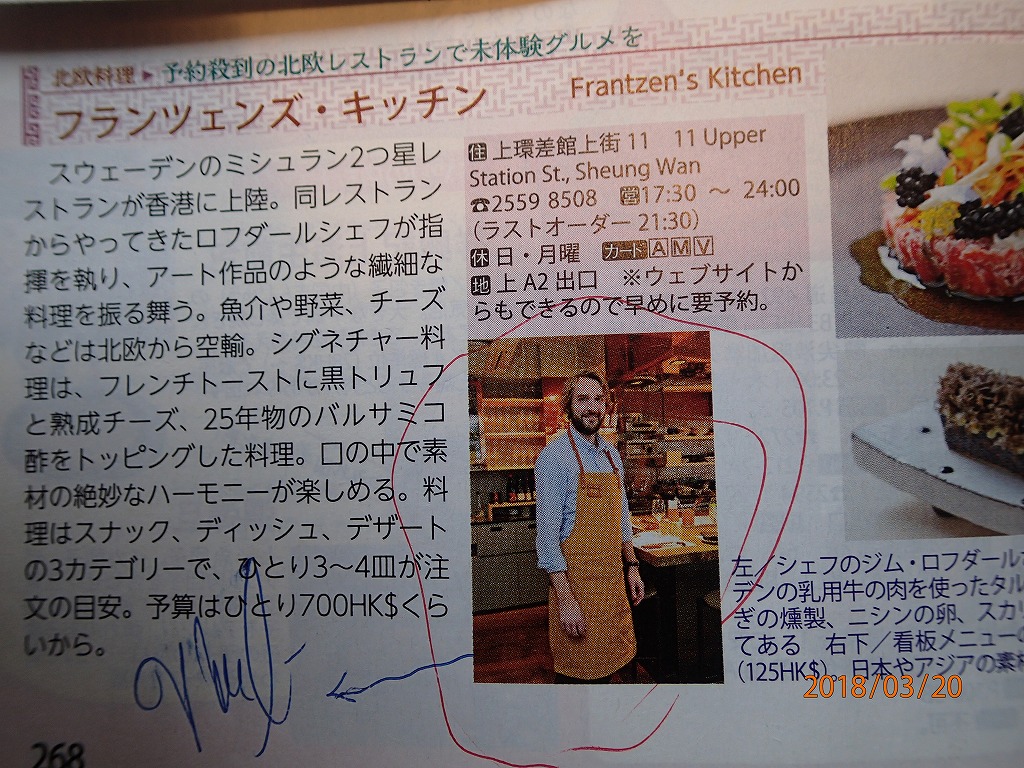 北欧料理▶予約殺到の北欧レストランで未体験グルメを
フランツェンズ・キッチン Frantzen's Kitchen
スウェーデンのミシュラン2つ星レ
ストランが香港に上陸。同レストラン
からやってきたロフダールシェフが指
揮を執り、アート作品のような繊細な
料理を振る舞う。魚介や野菜、チーズ
などは北欧から空輸。シグネチャー料
理は、フレンチトーストに黒トリュフ
と熟成チーズ、25年物のバルサミコ
酢をトッピングした料理。口の中で素
材の絶妙なハーモニーが楽しめる。料
理はスナック、ディッシュ、デザート
の3カテゴリーで、ひとり3〜4皿が注
文の目安。予算はひとり700HK$くら
いから。
住 上環差館上街 11 11 Upper
Station St., Sheung Wan
☎2559 8508 営17:30 〜 24:00
（ラストオーダー 21:30）
休 日・月曜 カード A M V
地 上 A2 出口 ※ウェブサイトか
らもできるので早めに要予約。
左／シェフのジム・ロフダール
デンの乳用牛の肉を使ったタル
ぎの燻製、ニシンの卵、スカリ
てある 右下／看板メニューの
（125HK$）。日本やアジアの素材
2018/03/20
268